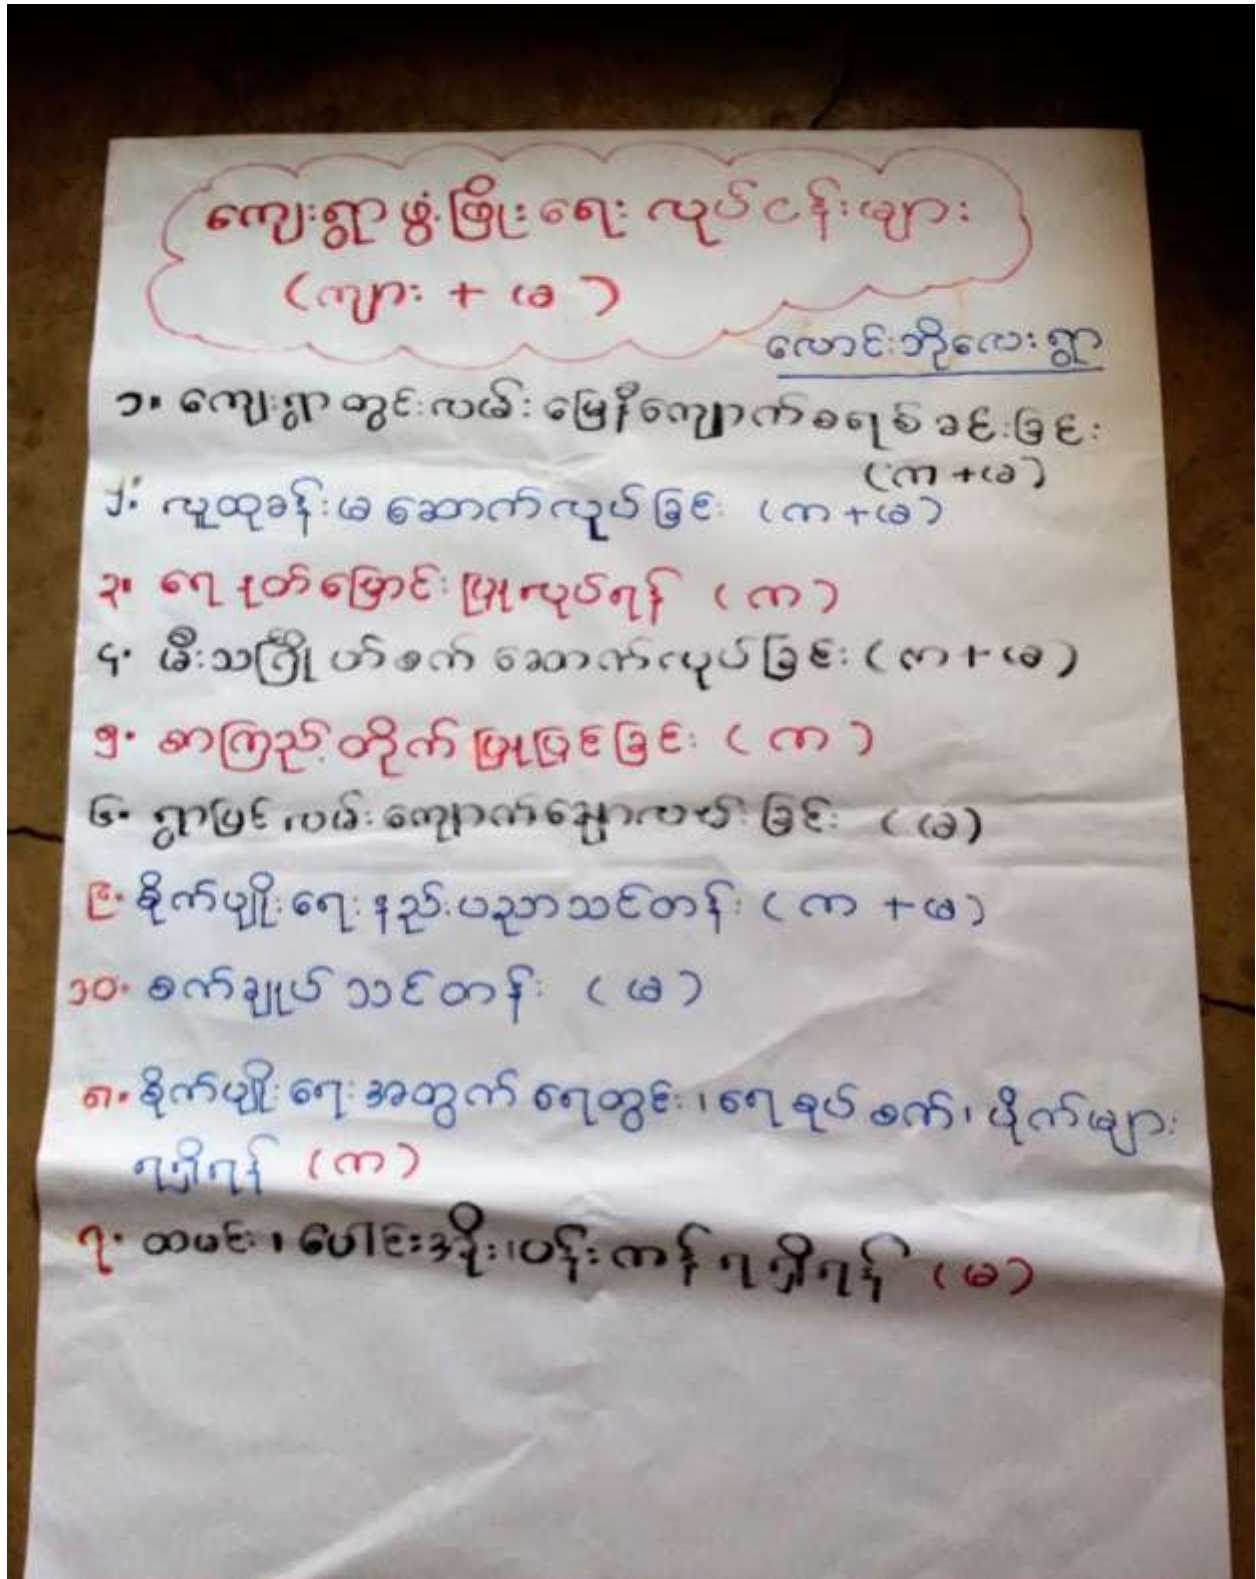 ကျေးရွာဖွံ့ဖြိုးရေး လုပ်ငန်းများ
(ကျား + မ)
လောင်းဘိုလေးရွာ
၁။ ကျေးရွာတွင်းလမ်း မြေနီကျောက်စရစ်ခင်းခြင်း
(က+မ)
၂။ လူထုခန်းမ ဆောက်လုပ်ခြင်း (က+မ)
၃။ ရေနုတ်မြောင်း ပြုလုပ်ရန် (က)
၄. မီးသင်္ဂြိုဟ်စက် ဆောက်လုပ်ခြင်း (က+မ)
၅. စာကြည့်တိုက် ပြုပြင်ခြင်း (က)
၆. ရွာပြင်လမ်းကျောက်ချောလမ်းခြင်း (မ)
၉. စိုက်ပျိုးရေးနည်းပညာသင်တန်း (က +မ)
၁၀. စက်ချုပ်သင်တန်း (မ)
၈. စိုက်ပျိုးရေးအတွက် ရေတွင်း၊ ရေစုပ်စက်၊ ပိုက်များ
ရရှိရန် (က)
၇. ထမင်း၊ ပေါင်းအိုး၊ ပန်းကန် ရရှိရန် (မ)